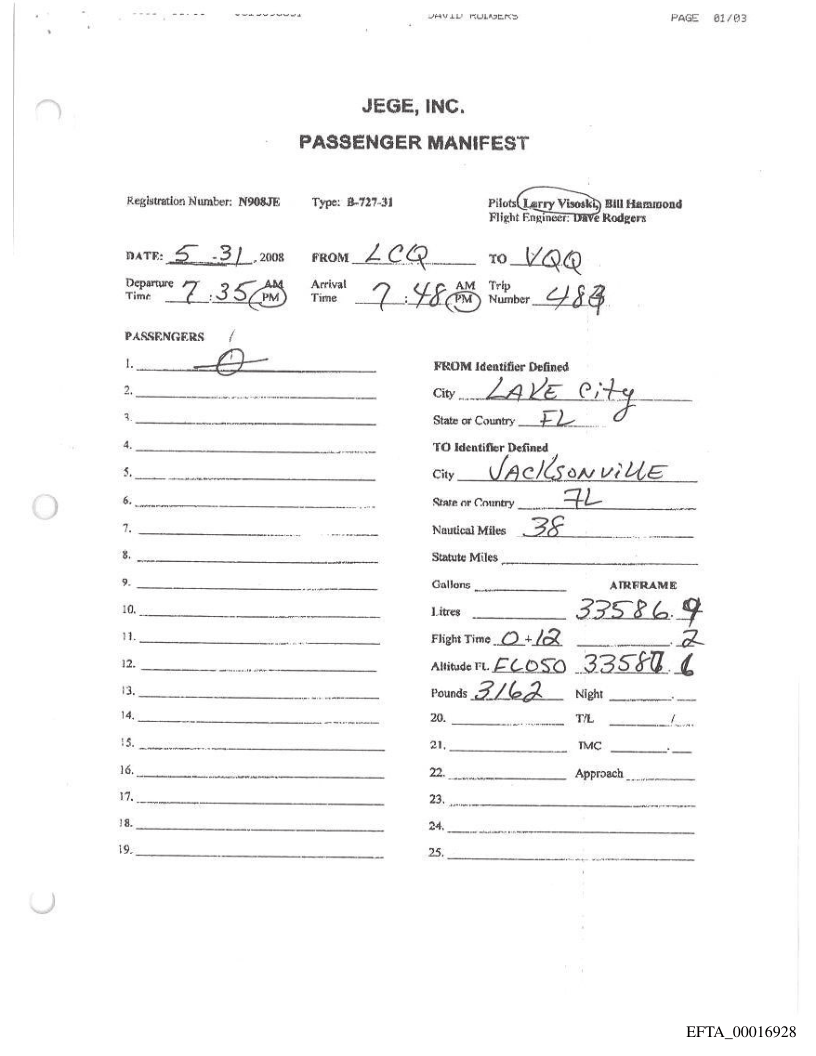 DAVID RODGERS PAGE 01/03
JEGE, INC.
PASSENGER MANIFEST
Registration Number: N908JE Type: B-727-31 Pilots: Larry Visoski, Bill Hammond
Flight Engineer: Dave Rodgers
DATE: 5-31, 2008 FROM LCQ TO VQQ
Departure Time 7:35 AM PM Arrival Time 7:48 AM PM Trip Number 483
PASSENGERS
1. FROM Identifier Defined
2. City LAKE City
3. State or Country FL
4. TO Identifier Defined
5. City JACKSONVILLE
6. State or Country FL
7. Nautical Miles 38
8. Statute Miles
9. Gallons AIRFRAME
10. Litres 33586.9
11. Flight Time 0+12 .2
12. Altitude Ft. FL050
13. Pounds 3162 Night .
14. 20. T/L /
15. 21. IMC .
16. 22. Approach
17. 23.
18. 24.
19. 25.
EFTA_00016928